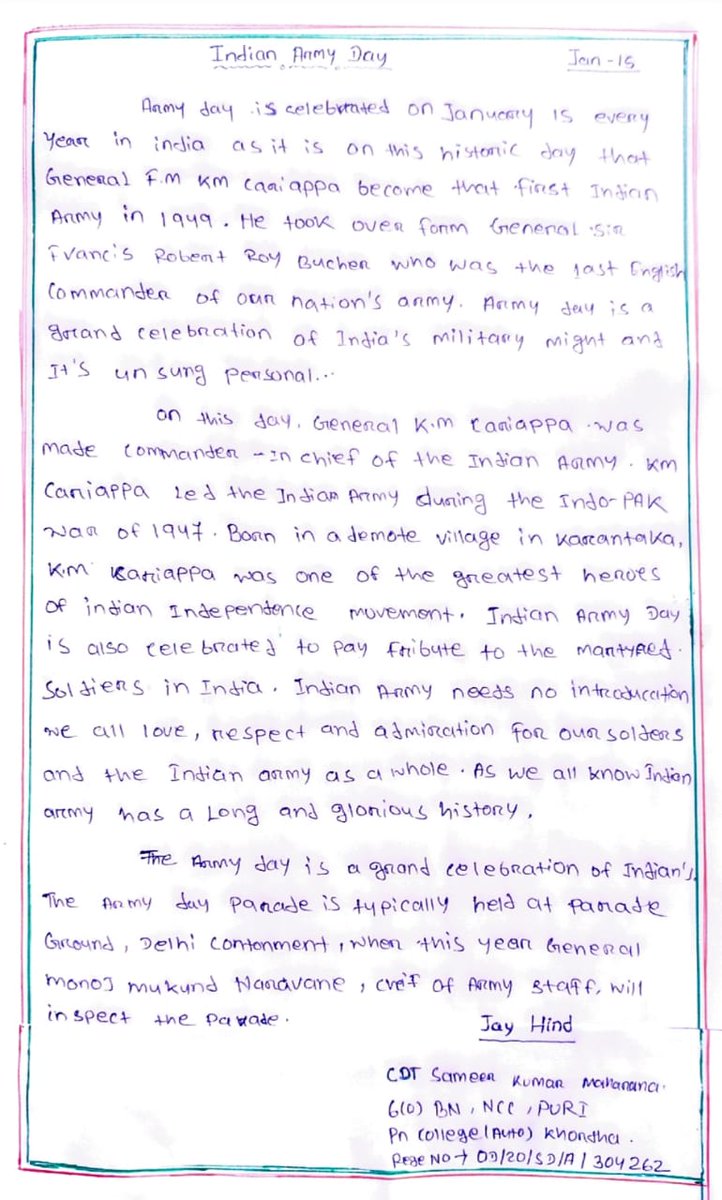 Indian Army Day
Jan-15
Army day is celebrated on January 15 every
year in india as it is on this historic day that
General F.M KM Cariappa become that first Indian
Army in 1949. He took over form General Sir
Francis Robert Roy Bucher who was the last English
Commander of our nation's army. Army day is a
grand celebration of India's military might and
It's un sung personal...
On this day, General K.M Cariappa was
made Commander-in chief of the Indian Army. KM
Cariappa Led the Indian Army during the Indo-PAK
war of 1947. Born in a demote village in Karantaka,
K.M Kariappa was one of the greatest heroes
of indian Independence movement. Indian Army Day
is also celebrated to pay tribute to the martyred.
Soldiers in India. Indian Army needs no introducation
we all love, respect and admiration for our solders
and the Indian army as a whole. As we all know Indian
army has a Long and glorious history.
The Army day is a grand celebration of Indian's.
The Army day Parade is typically held at Parade
Ground, Delhi Contonment, when this year General
Monoj mukund Naravane, of Army staff, will
inspect the Parade.
Jay Hind
CDT Sameer Kumar Maharana.
6(O) BN, NCC, PURI
Pn College (Auto) Khordha.
Rege NO→ OD/20/SD/A/304262